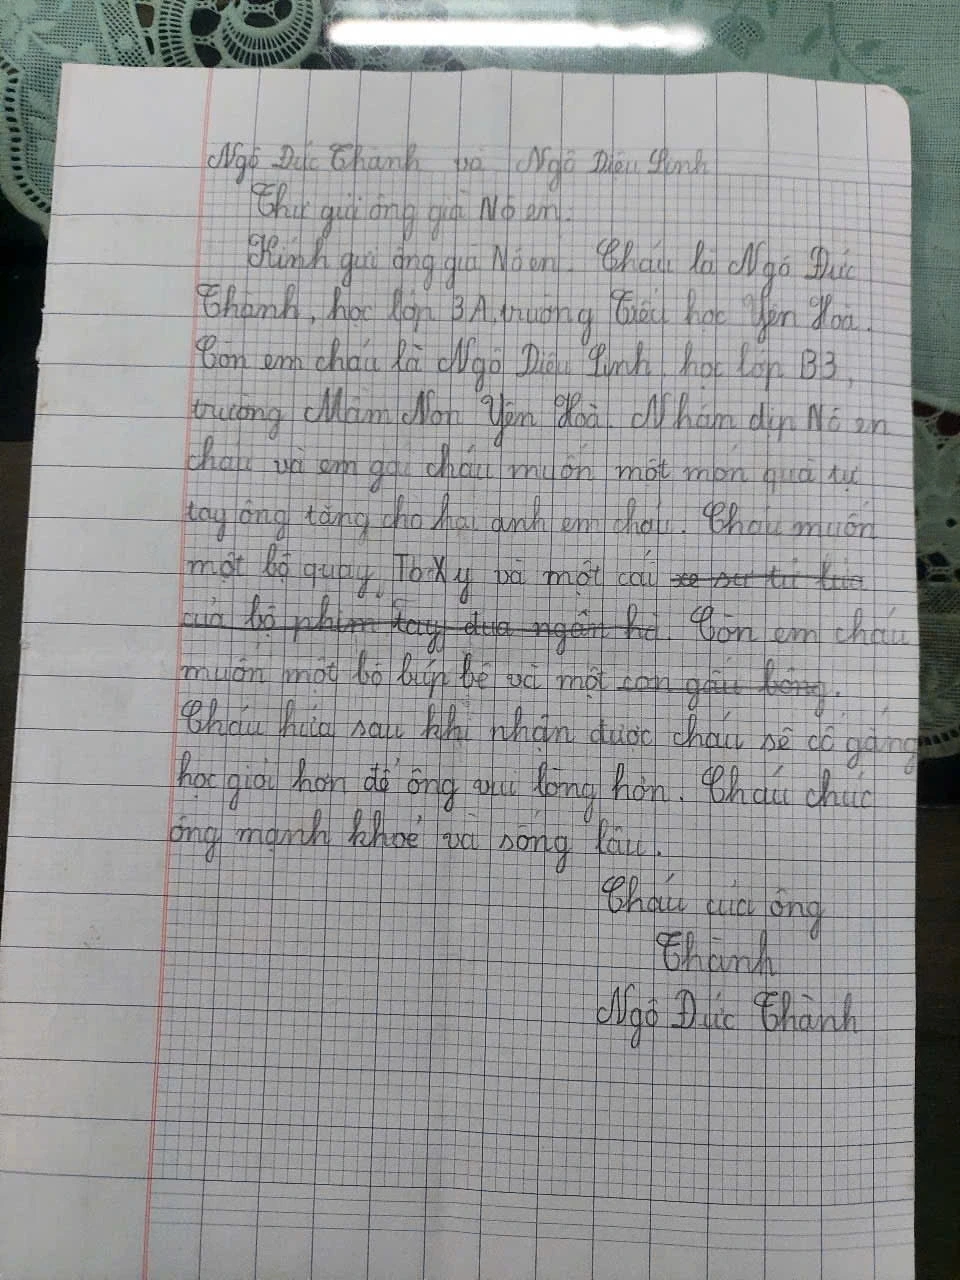 Ngô Đức Thành và Ngô Diệu Linh
Thư gửi ông già Nô en.
Kính gửi ông già Nô en. Cháu là Ngô Đức
Thành, học lớp 3A, trường Tiểu học Yên Hoà.
Còn em cháu là Ngô Diệu Linh, học lớp B3,
trường Mầm Non Yên Hoà. Nhâm dịp Nô en
cháu và em gái cháu muốn một món quà tự
tay ông tặng cho hai anh em cháu. Cháu muốn
một bộ quay Tô-Xy và một cái xe sư tử lửa
của bộ phim tay đua ngân hà. Còn em cháu
muốn một bộ búp bê và một con gấu bông.
Cháu hứa sau khi nhận được cháu sẽ cố gắng
học giỏi hơn để ông vui lòng hơn. Cháu chúc
ông mạnh khoẻ và sống lâu.
Cháu của ông
Thành
Ngô Đức Thành